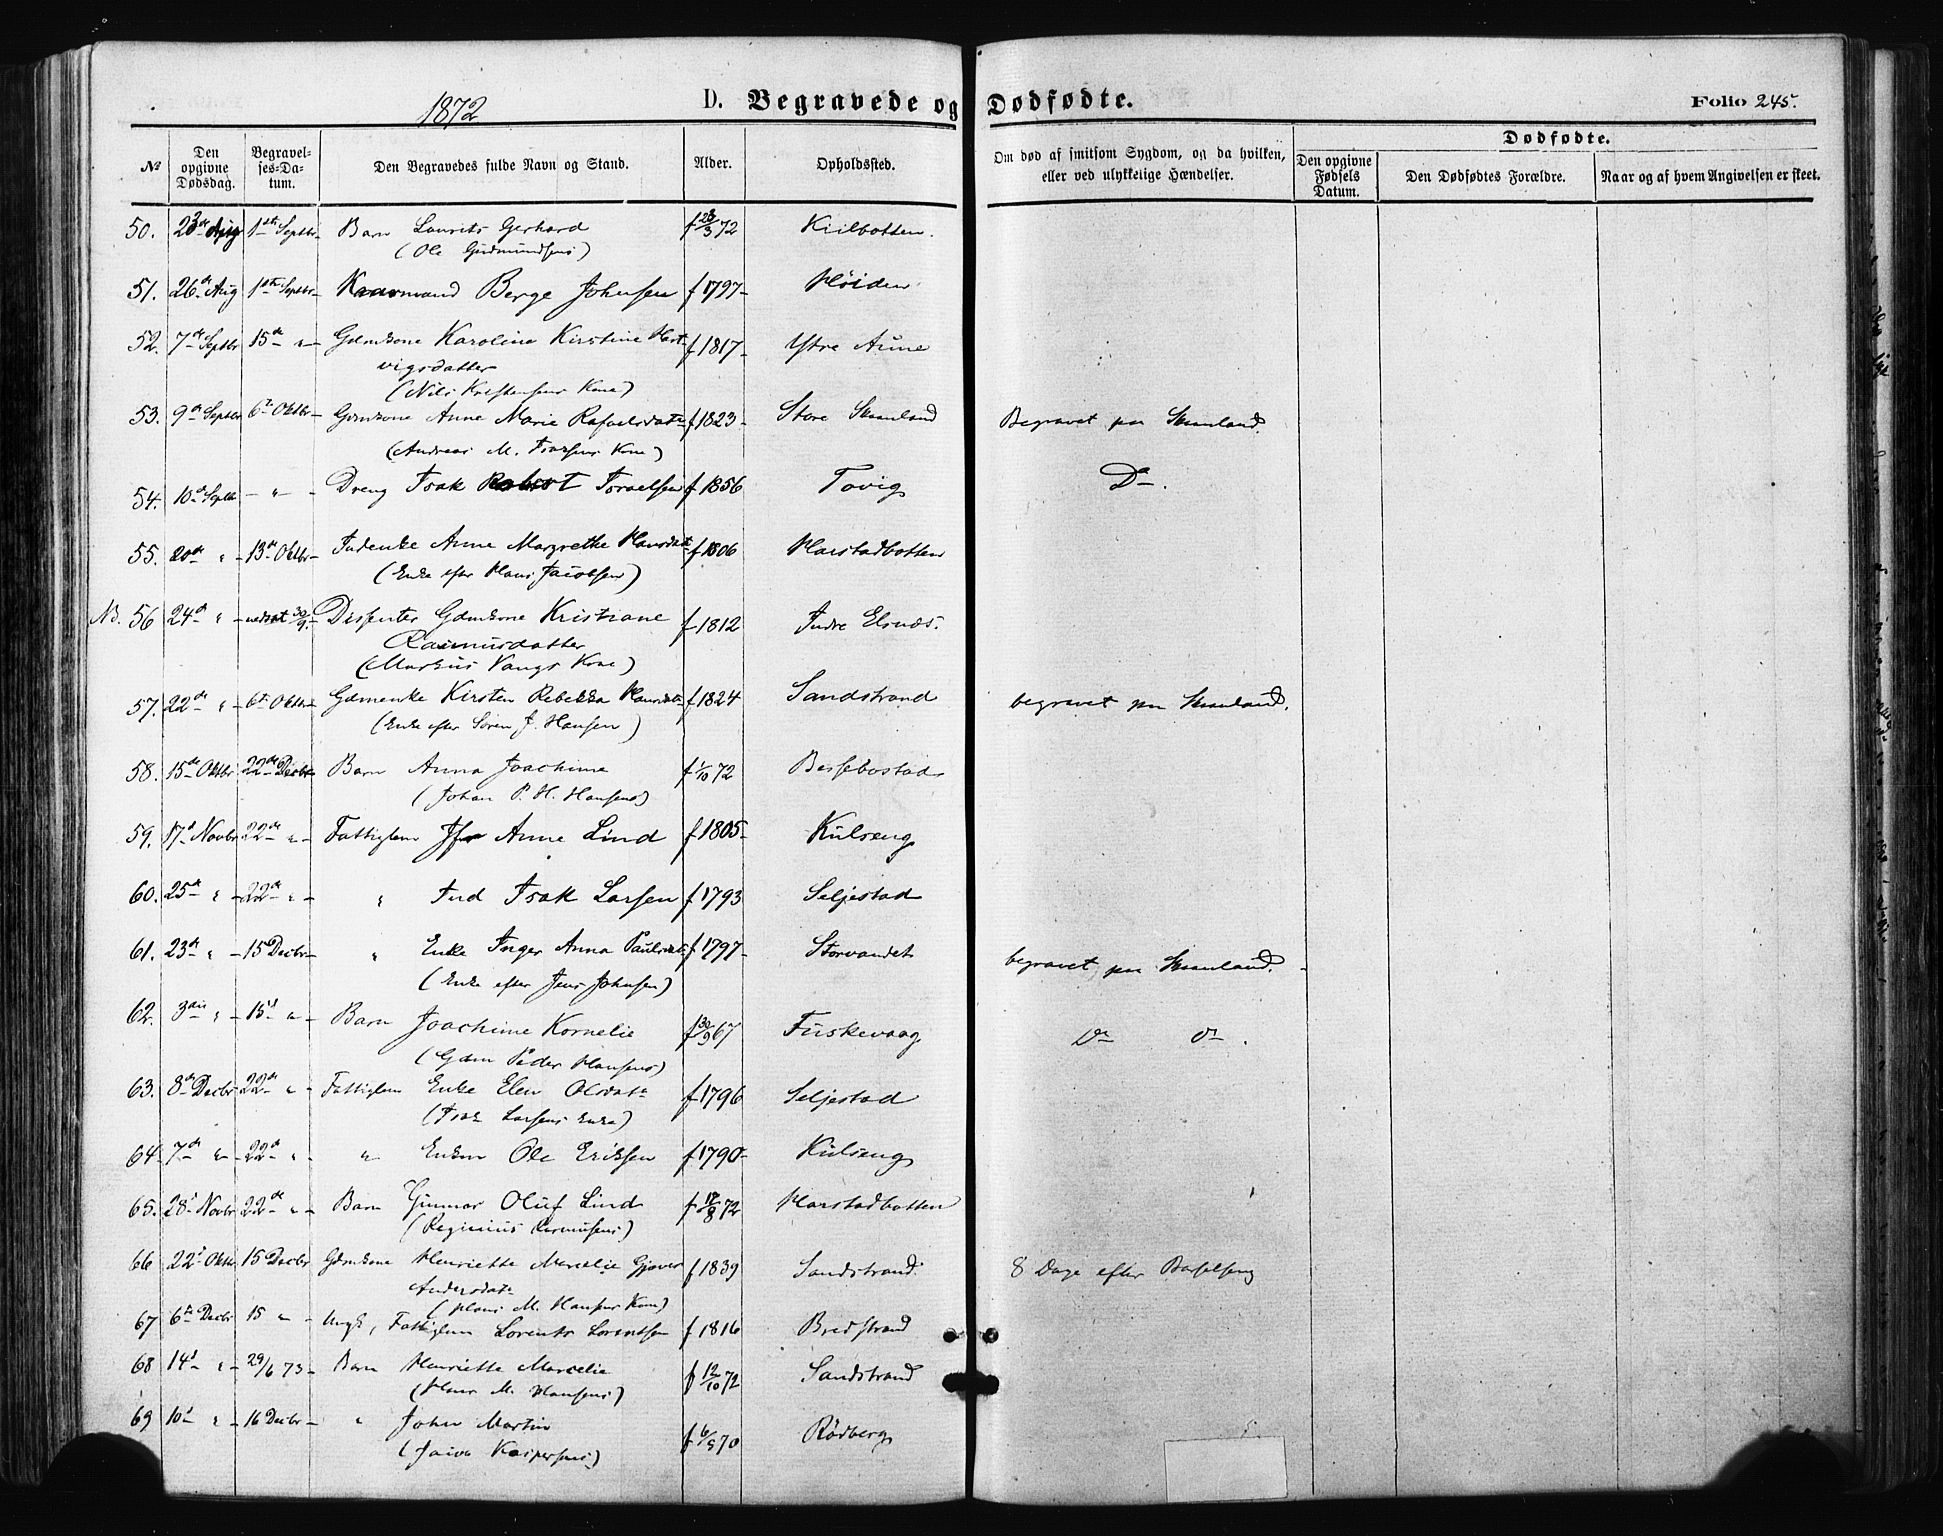 1872 D. Begravede og Dødfødte. Folio 245.
№ Den opgivne Dødsdag. Begravelses-Datum. Den Begravedes fulde Navn og Stand. Alder. Opholdssted. Om død af smitsom Sygdom, og da hvilken, eller ved ulykkelige Hændelser. Dødfødte. Den opgivne Fødsels Datum. Den Dødfødtes Forældre. Naar og af hvem Angivelsen er skeet.
50. 23de Aug 1ste Septbr Barn Laurits Gerhard f 23/3 72 Kiilbotten.
(Ole Gudmundsens)
51. 26de Aug 1ste Septbr Kaarmand Berge Johnsen f 1797 Høiden
52. 7de Septbr 15de " Gdmkone Karoline Kirstine Hart- f 1817 Ytre Aune
vigsdatter
(Nils Kristensens Kone)
53. 9de Septbr 6te Oktbr Gdmkone Anne Marie Rafaelsdatr f 1823 Store Skanland Begravet paa Skanland.
(Andreas M. Kone)
54. 10de Septbr " Dreng Isak Robert Israelsen f 1856 Tovig Do.
55. 20de " 13de Oktbr Inderke Anne Margrethe Hansdatr f 1806 Harstadbotten
(Enke efter Hans Jacobsen)
NB. 56 24de " nedsat 30/9. Dissenter Gdmkone Kristiane f 1812 Indre Elsnæs.
Rasmusdatter
(Markus Vangs Kone)
57. 22de " 6te Oktbr Gdmenke Kirsten Rebekka Hansdatr f 1824 Sandstrand begravet paa Skanland.
(Enke efter Søren J. Hansen)
58. 15de Oktbr 22de Decbr Barn Anna Joachime f 1/10 72 Bessebostad
(Johan P. H. Hansens)
59. 17d Novbr 22de " Fattiglem Jfr Anne Lind f 1805 Kulseng
60. 25de " 22de " " Ind Isak Larsen f 1793 Seljestad
61. 23de " 15 Decbr " Enke Inger Anna Paulsdatr f 1797 Storvandet begravet paa Skanland.
(Enke efter Jens Johnsen)
62. 3die " 15d " Barn Joachime Kornelie f 30/9 67 Fuskevaag Do do.
(Gdm Peder Hansens)
63. 8de Decbr 22de " Fattiglem Enke Elen Olsdatr f 1796 Seljestad
(Isak Larsens Enke)
64. 7de " 22de " " Enkm Ole Eriksen f 1790 Kulseng
65. 28d Novbr 22de " Barn Gunnar Oluf Lind f 17/8 72 Harstadbotten
(Reginius Rasmusens)
66 22d Oktbr 15 Decbr Gdmkone Henriette Marcelie Gjøver f 1839 Sandstrand. 8 Dage efter Barselseng
Andersdatr
(Hans M. Hansens Kone)
67 6te Decbr 15 " Ungk, Fattiglem Lorents Lorentsen f 1816 Bredstrand
68 14d " 29/6 73 Barn Henriette Marcelie f 12/10 72 Sandstrand
(Hans M. Hansens)
69 10d " 16 Decbr " John Martin f 6/5 70 Rødberg
(Kaspersens)